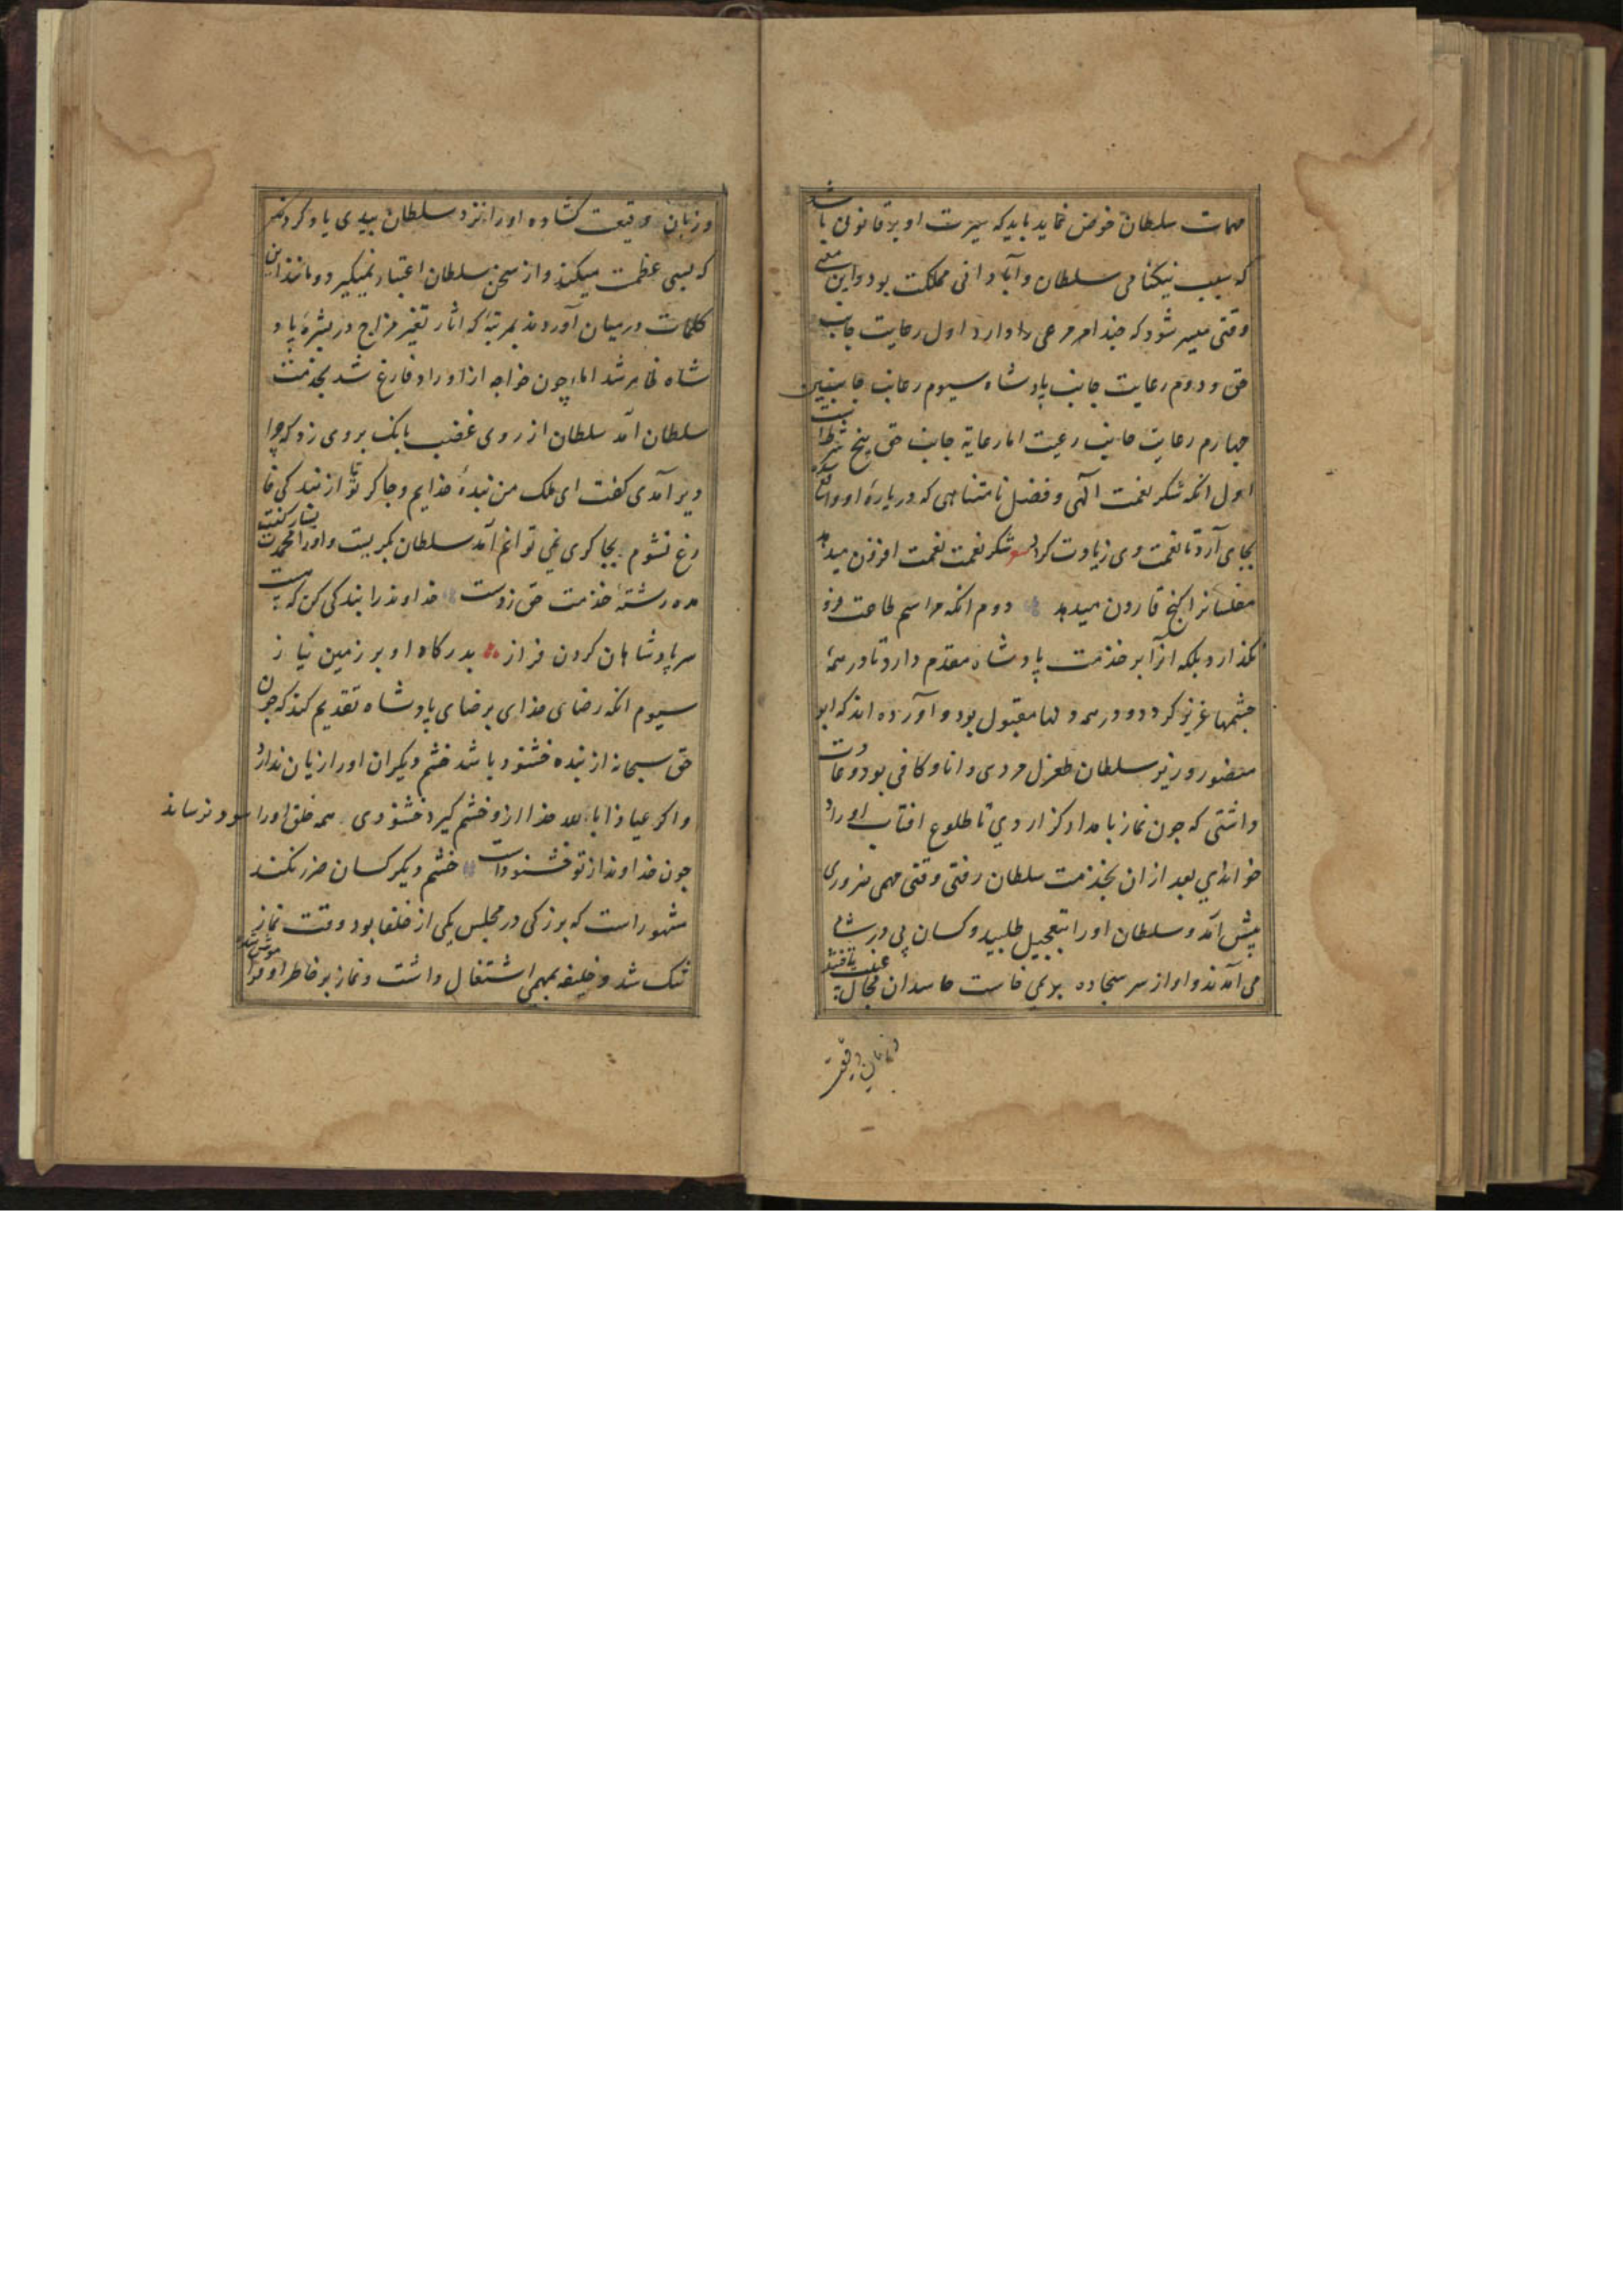 مهمات سلطان خوض نماید باید که سیرت او بر قانونی باشد
که سبب نیکنامی سلطان و آبادانی مملکت بود و این معنی
وقتی میسر شود که چند امر مرعی دارد اول رعایت جانب
حق و دوم رعایت جانب پادشاه سیوم رعایت جانبین
چهارم رعایت جانب رعیت اما رعایة جانب حق پنج شرط است
اول انکه شکر نعمت آلهی و فضل نامتناهی که در باره او واقع
بجای آرد تا نعمت وی زیادت کردد شکر نعمت نعمت افزون میدهد
مفلسانرا کنج قارون میدهد دوم انکه مراسم طاعت فرو
نکذارد بلکه انرا بر خدمت پادشاه مقدم دارد تا در همه
چشمها عزیز کردد و در همه دلها مقبول بود و آورده اند که ابو
منصور وزیر سلطان طغرل مردی دانا و کافی بود و عادت
داشتی که چون نماز بامداد کزاردی تا طلوع افتاب اوراد
خواندی بعد ازان بخدمت سلطان رفتی وقتی مهمی ضروری
پیش آمد و سلطان او را بتعجیل طلبید و کسان پی در پی
می آمدند و او از سر سجاده بر نمی خاست حاسدان مجال غیبت یافتند
و زبان وقیعت
و زبان وقیعت کشاده او را نزد سلطان ببدی یاد کردند
که بسی عظمت میکند و از سخن سلطان اعتبار نمیکیرد و مانند این
کلمات در میان آوردند بمرتبهٔ که اثار تغیر مزاج در بشرهٔ پاد
شاه ظاهر شد اما چون خواجه از اوراد فارغ شد بخدمت
سلطان آمد سلطان از روی غضب بانک بر وی زد که چرا
دیر آمدی کفت ای ملک من بندهٔ خدایم و چاکر تو تا از بندکی فا
رغ نشوم بچاکری نمی توانم آمد سلطان بکریست و او را
مده رشتهٔ خدمت حق ز دست خداوند را بندکی کن که هست
سر پادشاهان کردن فراز بدرکاه او بر زمین نیاز
سیوم انکه رضای خدای بر رضای پادشاه تقدیم کند که چون
حق سبحانه از بنده خشنود باشد خشم دیکران او را زیان ندارد
و اکر عیاذا بالله خدا ازو خشم کیرد خشنودی همه خلق او را سود نرساند
چون خداوند از تو خشنود است خشم دیکر کسان ضرر نکند
مشهور است که بزرکی در مجلس یکی از خلفا بود وقت نماز
تنک شد و خلیفه بمهمی اشتغال داشت و نماز بر خاطر او